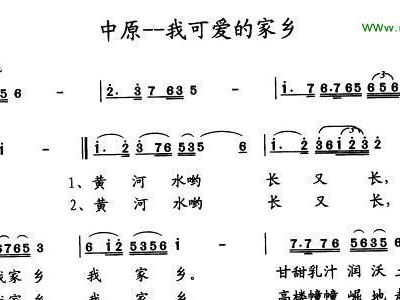 中原--我可爱的家乡
www.
5 6 - | 2. 3 7 6 3 5 - | i. 7 6.765 656
i - || 2 3 76 535 6 | i. 2 36 i 2 3
1、黄 河 水哟 长 又 长，
2、黄 河 水哟 长 又 长，
6765 3 | 6 i2 5356 | i - | 7.7 76 535
家 乡 我 家 乡。 甘甜乳汁 润 沃
家 乡 我 家 乡。 高楼幢幢 崛 地